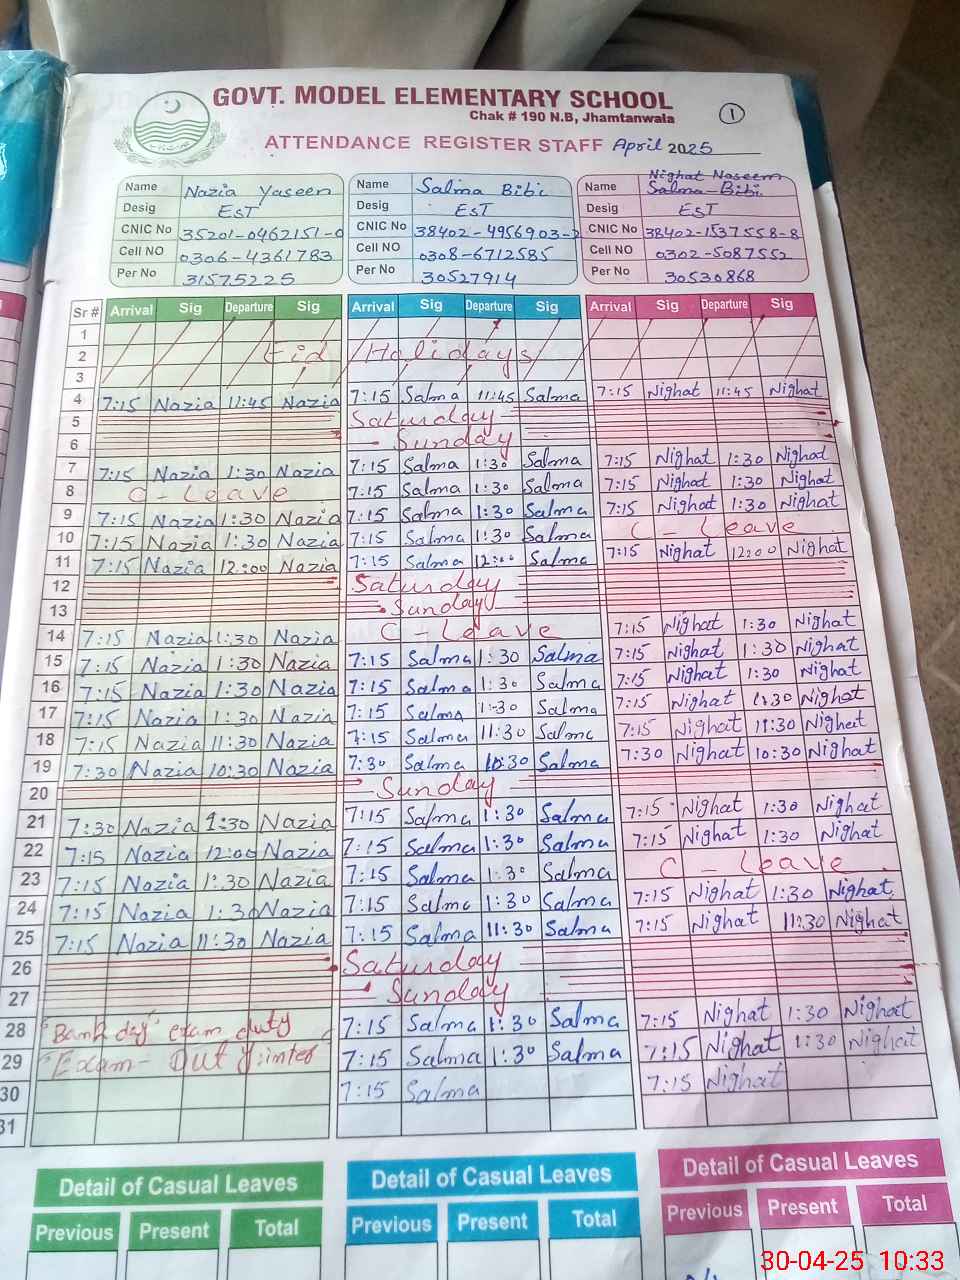 GOVT. MODEL ELEMENTARY SCHOOL
Chak # 190 N.B, Jhamtanwala
1
ATTENDANCE REGISTER STAFF April 2025
Name Nazia Yaseen Name Salma Bibi Name Nighat Naseem Salma Bibi
Desig EST Desig EST Desig EST
CNIC No 35201-0462151-0 CNIC No 38402-4956903-2 CNIC No 38402-1537558-8
Cell NO 0306-4361783 Cell NO 0308-6712585 Cell NO 0302-5087552
Per No 31575225 Per No 30527914 Per No 30530868
Sr # Arrival Sig Departure Sig Arrival Sig Departure Sig Arrival Sig Departure Sig
1
2 Eid Holidays
3
4 7:15 Nazia 11:45 Nazia 7:15 Salma 11:45 Salma 7:15 Nighat 11:45 Nighat
5 Saturday
6 Sunday
7 7:15 Nazia 1:30 Nazia 7:15 Salma 1:30 Salma 7:15 Nighat 1:30 Nighat
8 C - Leave 7:15 Salma 1:30 Salma 7:15 Nighat 1:30 Nighat
9 7:15 Nazia 1:30 Nazia 7:15 Salma 1:30 Salma 7:15 Nighat 1:30 Nighat
10 7:15 Nazia 1:30 Nazia 7:15 Salma 1:30 Salma C - Leave
11 7:15 Nazia 12:00 Nazia 7:15 Salma 12:00 Salma 7:15 Nighat 12:00 Nighat
12 Saturday
13 Sunday
14 7:15 Nazia 1:30 Nazia C - Leave 7:15 Nighat 1:30 Nighat
15 7:15 Nazia 1:30 Nazia 7:15 Salma 1:30 Salma 7:15 Nighat 1:30 Nighat
16 7:15 Nazia 1:30 Nazia 7:15 Salma 1:30 Salma 7:15 Nighat 1:30 Nighat
17 7:15 Nazia 1:30 Nazia 7:15 Salma 1:30 Salma 7:15 Nighat 1:30 Nighat
18 7:15 Nazia 11:30 Nazia 7:15 Salma 11:30 Salma 7:15 Nighat 11:30 Nighat
19 7:30 Nazia 10:30 Nazia 7:30 Salma 10:30 Salma 7:30 Nighat 10:30 Nighat
20 Sunday
21 7:30 Nazia 1:30 Nazia 7:15 Salma 1:30 Salma 7:15 Nighat 1:30 Nighat
22 7:15 Nazia 12:00 Nazia 7:15 Salma 1:30 Salma 7:15 Nighat 1:30 Nighat
23 7:15 Nazia 1:30 Nazia 7:15 Salma 1:30 Salma C - Leave
24 7:15 Nazia 1:30 Nazia 7:15 Salma 1:30 Salma 7:15 Nighat 1:30 Nighat
25 7:15 Nazia 11:30 Nazia 7:15 Salma 11:30 Salma 7:15 Nighat 11:30 Nighat
26 Saturday
27 Sunday
28 "Bank day" exam duty 7:15 Salma 1:30 Salma 7:15 Nighat 1:30 Nighat
29 "Exam - Duty inter" 7:15 Salma 1:30 Salma 7:15 Nighat 1:30 Nighat
30 7:15 Salma 7:15 Nighat
31
Detail of Casual Leaves Detail of Casual Leaves Detail of Casual Leaves
Previous Present Total Previous Present Total Previous Present Total
30-04-25 10:33